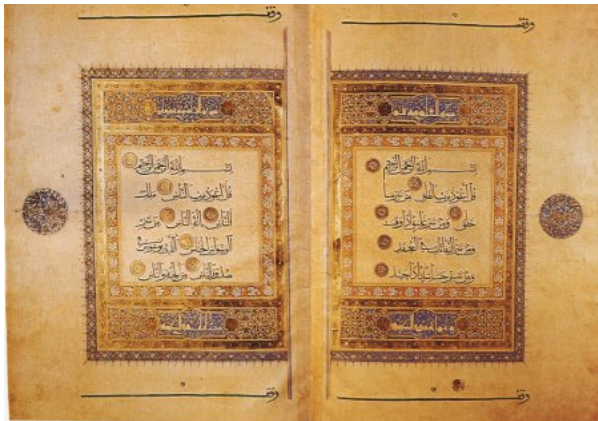 وقف
بسم الله الرحمن الرحيم
قل اعوذ برب الفلق من شر ما
خلق ومن شر غاسق اذا وقب
ومن شر النفاثات في العقد
ومن شر حاسد اذا حسد
وقف
وقف
بسم الله الرحمن الرحيم
قل اعوذ برب الناس ملك
الناس اله الناس من شر
الوسواس الخناس الذي يوسوس في
صدور الناس من الجنة والناس
وقف